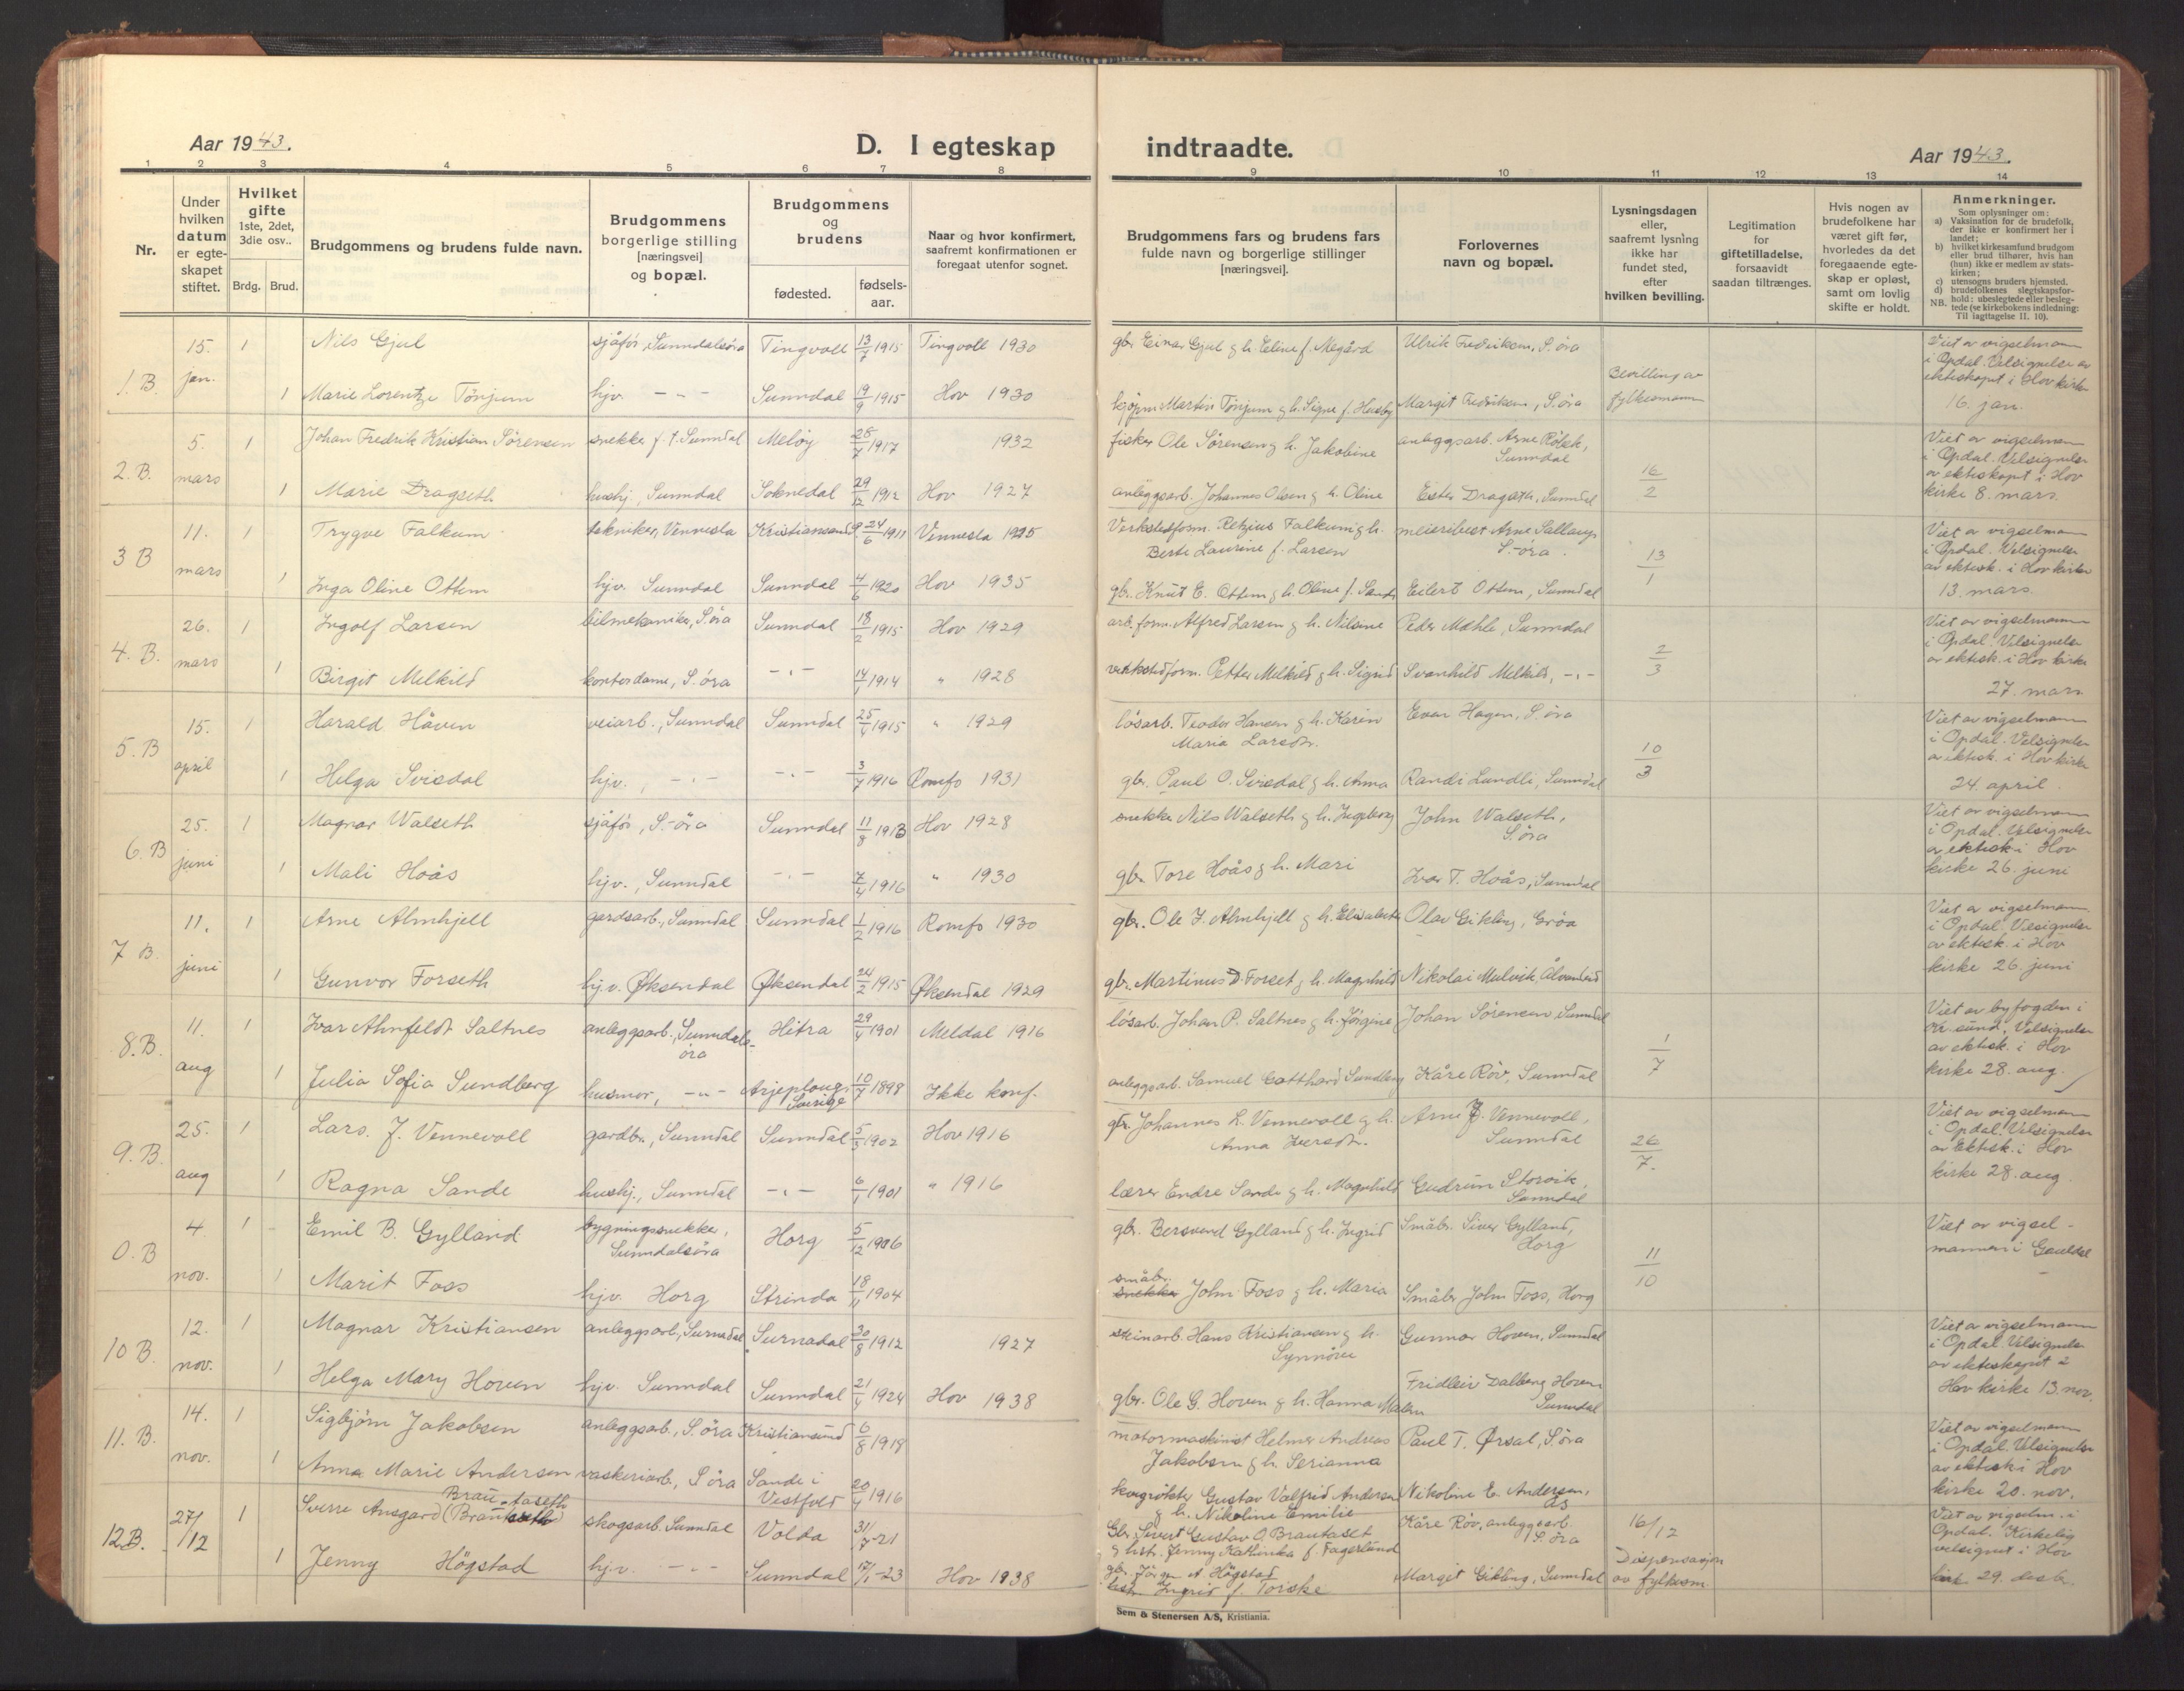 Aar 1943.
D. I egteskap
indtraadte.
Aar 1943.
1 2 3 4 5 6 7 8 9 10 11 12 13 14
Nr.
Under
hvilken
datum
er egte-
skapet
stiftet.
Hvilket
gifte
1ste, 2det,
3die osv..
Brdg. Brud.
Brudgommens og brudens fulde navn.
Brudgommens
borgerlige stilling
[næringsvei]
og bopæl.
Brudgommens
og
brudens
fødested.
fødsels-
aar.
Naar og hvor konfirmert,
saafremt konfirmationen er
foregaat utenfor sognet.
Brudgommens fars og brudens fars
fulde navn og borgerlige stillinger
[næringsvei].
Forlovernes
navn og bopæl.
Lysningsdagen
eller,
saafremt lysning
ikke har
fundet sted,
efter
hvilken bevilling.
Legitimation
for
giftetilladelse,
forsaavidt
saadan tiltrænges.
Hvis nogen av
brudefolkene har
været gift før,
hvorledes da det
foregaaende egte-
skap er opløst,
samt om lovlig
skifte er holdt.
Anmerkninger.
Som oplysninger om:
a) Vaksination for de brudefolk,
der ikke er konfirmert her i
landet;
b) hvilket kirkesamfund brudgom
eller brud tilhører, hvis han
(hun) ikke er medlem av stats-
kirken;
c) utensogns bruders hjemsted.
d) brudefolkenes slegtskapsfor-
hold: ubeslegtede eller besleg-
tede (se kirkebokens indledning:
NB. Til iagttagelse II. 10).
1. B 15. jan. 1 Nils Gjul sjåfør, Sunndalsøra Tingvoll 13/7 1915 Tingvoll 1930 gbr. Einar Gjul g h. Eline f. Megård Ulrik Fredriksen, S. øra
Bevilling av
fylkesmann
Viet av vigselmann
i Opdal. Velsignelse av
ekteskapet i Hov kirke
16. jan.
1 Marie Lorentze Tønjum hjv. -"- Sunndal 19/9 1915 Hov 1930 kjøpm Martin Tønjum g h. Signe f. Husby Margit Fredriksen, S. øra
2. B. 5. mars 1 Johan Fredrik Kristian Sørensen snekker f. t. Sunndal Meløy 28/7 1917 1932 fisker Ole Sørensen g h. Jakobine anleggsarb. Arne Röbek,
Sunndal
16/2
Viet av vigselmann
i Opdal. Velsignelse
av ekteskapet i Hov
kirke 8. mars.
1 Marie Dragseth hushj., Sunndal Soknedal 29/12 1912 Hov 1927 anleggsarb. Johannes Olsen g h. Oline Ester Dragseth, Sunndal
3 B 11. mars 1 Trygve Falkum tekniker, Vennesla Kristiansand S. 24/6 1911 Vennesla 1925 Verkstedform. Retzius Falkum g h.
Berte Laurine f. Larsen
meieribest Arne Sallaup
S.-øra.
13/1
Viet av vigselmann
i Opdal. Velsignelse
av ektesk. i Hov kirke
13. mars.
1 Inga Oline Ottem hjv. Sunndal Sunndal 4/6 1920 Hov 1935 gbr. Knut E. Ottem g h. Oline f. Sande Eilert Ottem, Sunndal
4. B. 26. mars 1 Ingolf Larsen bilmekaniker, S. øra Sunndal 18/2 1915 Hov 1929 arb. form. Alfred Larsen g h. Nilsine Peder Mæhle, Sunndal
2/3
Viet av vigselmann
i Opdal. Velsignelse
av ektesk. i Hov kirke
27. mars
1 Birgit Melkild kontordame, S. øra -"- 14/1 1914 " 1928 verkstedform. Petter Melkild g h. Sigrid Svanhild Melkild, -"-
5. B 15. april 1 Harald Håven veiarb., Sunndal Sunndal 25/4 1915 " 1929 løsarb. Teodor Hansen g h. Karen
Maria Larsdtr.
Evan Hagen, S. øra
10/3
Viet av vigselmann
i Opdal. Velsignelse
av ektesk. i Hov kirke
24. april.
1 Helga Svisdal hjv., -"- -"- 3/7 1916 Romfo 1931 gbr. Paul O. Svisdal g h. Anna Randi Lundli, Sunndal
6. B 25. juni 1 Magnar Walseth sjåfør, S.-øra Sunndal 11/8 1913 Hov 1928 snekker Nils Walseth g h. Ingeborg John Walseth,
S. øra
Viet av vigselmann
i Opdal. Velsignelse
av ektesk i Hov
kirke 26. juni
1 Mali Hoås hjv., Sunndal -"- 7/4 1916 " 1930 gbr. Tore Hoås g h. Mari Ivar T. Hoås, Sunndal
7 B. 11. juni 1 Arne Almhjell gardsarb., Sunndal Sunndal 1/2 1916 Romfo 1930 gbr. Ole J. Almhjell g h. Elisabeth Olav Gikling, Grøa
Viet av vigselmann
i Opdal. Velsignelse
av ektesk. i Hov
kirke 26. juni
1 Gunvor Forseth hj.v. Øksendal Øksendal 24/2 1915 Øksendal 1929 gbr. Martinus D. Forset g h. Magnhild Nikolai Mulvik, Ålvundeid
8. B. 11. aug 1 Ivar Ahnfeldt Saltnes anleggsarb., Sunndals-
øra
Hitra 29/4 1901 Meldal 1916 løsarb. Johan P. Saltnes g h. Jørgine Johan Sørensen, Sunndal
1/7
Viet av byfogden i
Kr. sund. Velsignelse
av ektesk. i Hov
kirke 28. aug.
1 Julia Sofia Sundberg husmor, -"- Arjeploug,
Sverige
10/7 1898 Ikke konf. anleggsarb. Samuel Gotthard Sundberg Kåre Röv, Sunndal
9. B. 25. aug 1 Lars. J. Vennevoll gardbr., Sunndal Sunndal 5/5 1902 Hov 1916 gbr. Johannes L. Vennevoll g h.
Anna Iversdtr.
Arne J. Vennevoll,
Sunndal
26/7.
Viet av vigselmann
i Opdal. Velsignelse
av Ektesk. i Hov
kirke 28. aug
1 Ragna Sande hushj., Sunndal -"- 6/1 1901 " 1916 lærer Endre Sande g h. Magnhild Gudrun Storvik,
Sunndal
0. B 4. nov. 1 Emil B. Gylland bygningssnekker,
Sunndalsøra
Horg 5/12 1906 gbr. Bersvend Gylland g h. Ingrid Småbr. Siver Gylland,
Horg
11/10
Viet av vigsel-
mannen i Gauldal
1 Marit Foss hjv. Horg Strinda 18/11 1904 småbr.
snekker John Foss g h. Maria Småbr John Foss, Horg
10 B. 12. nov. 1 Magnar Kristiansen anleggsarb., Surnadal Surnadal 30/8 1912 1927 steinarb. Hans Kristiansen g h.
Synnöve
Gunnar Hoven, Sunndal
Viet av vigselmann
i Opdal. Velsignelse
av ekteskapet i
Hov kirke 13. nov.
1 Helga Mary Hoven hjv. Sunndal Sunndal 21/4 1924 Hov 1938 gbr. Ole G. Hoven g h. Hanna Malen Fridleir Dalberg Hoven
Sunndal
11. B. 14. nov. 1 Sigbjørn Jakobsen anleggsarb., S. øra Kristiansund 6/8 1918 motormaskinist Helmer Andreas
Jakobsen g h. Serianna
Paul T. Ørsal, S. øra
Viet av vigselmann
i Opdal. Velsignelse
av ektesk i Hov
kirke 20. nov.
1 Anna Marie Andersen vaskeriarb., S øra Sande i
Vestfold
20/4 1916 skogrøkter Gustav Valfrid Andersen
g h. Nikoline Emilie
Nikoline E. Andersen,
Ås
12B. 27/12 1 Sverre Ansgard (Brautaseth) Brautaseth skogsarb. Sunndal Volda 31/7-21 Gbr. Sivert Gustav O. Brautaset
g hst. Jenny Kathinka f. Fagerlund
Kåre Röv, anleggsarb.
S. øra
16/12
Dispensasjon
av fylkesm.
Viet av vigselm. i
Opdal. Kirkelig
velsignet i Hov
kirke 29. desb.
1 Jenny Högstad hjv. -"- Sunndal 17/1-23 Hov 1938 gbr. Jörgen A. Högstad
Ingrid f. Torske
Margit Gikling, Sunndal
Sem & Stenersen A/S, Kristiania.